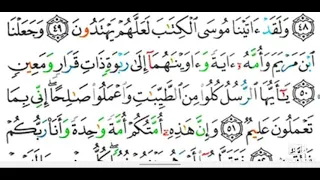 ٤٨ وَلَقَدْ ءَاتَيْنَا مُوسَى ٱلْكِتَٰبَ لَعَلَّهُمْ يَهْتَدُونَ ٤٩ وَجَعَلْنَا
ٱبْنَ مَرْيَمَ وَأُمَّهُۥٓ ءَايَةً وَءَاوَيْنَٰهُمَآ إِلَىٰ رَبْوَةٍ ذَاتِ قَرَارٍ وَمَعِينٍ
٥٠ يَٰٓأَيُّهَا ٱلرُّسُلُ كُلُوا۟ مِنَ ٱلطَّيِّبَٰتِ وَٱعْمَلُوا۟ صَٰلِحًا إِنِّى بِمَا
تَعْمَلُونَ عَلِيمٌ ٥١ وَإِنَّ هَٰذِهِۦٓ أُمَّتُكُمْ أُمَّةً وَٰحِدَةً وَأَنَا۠ رَبُّكُمْ